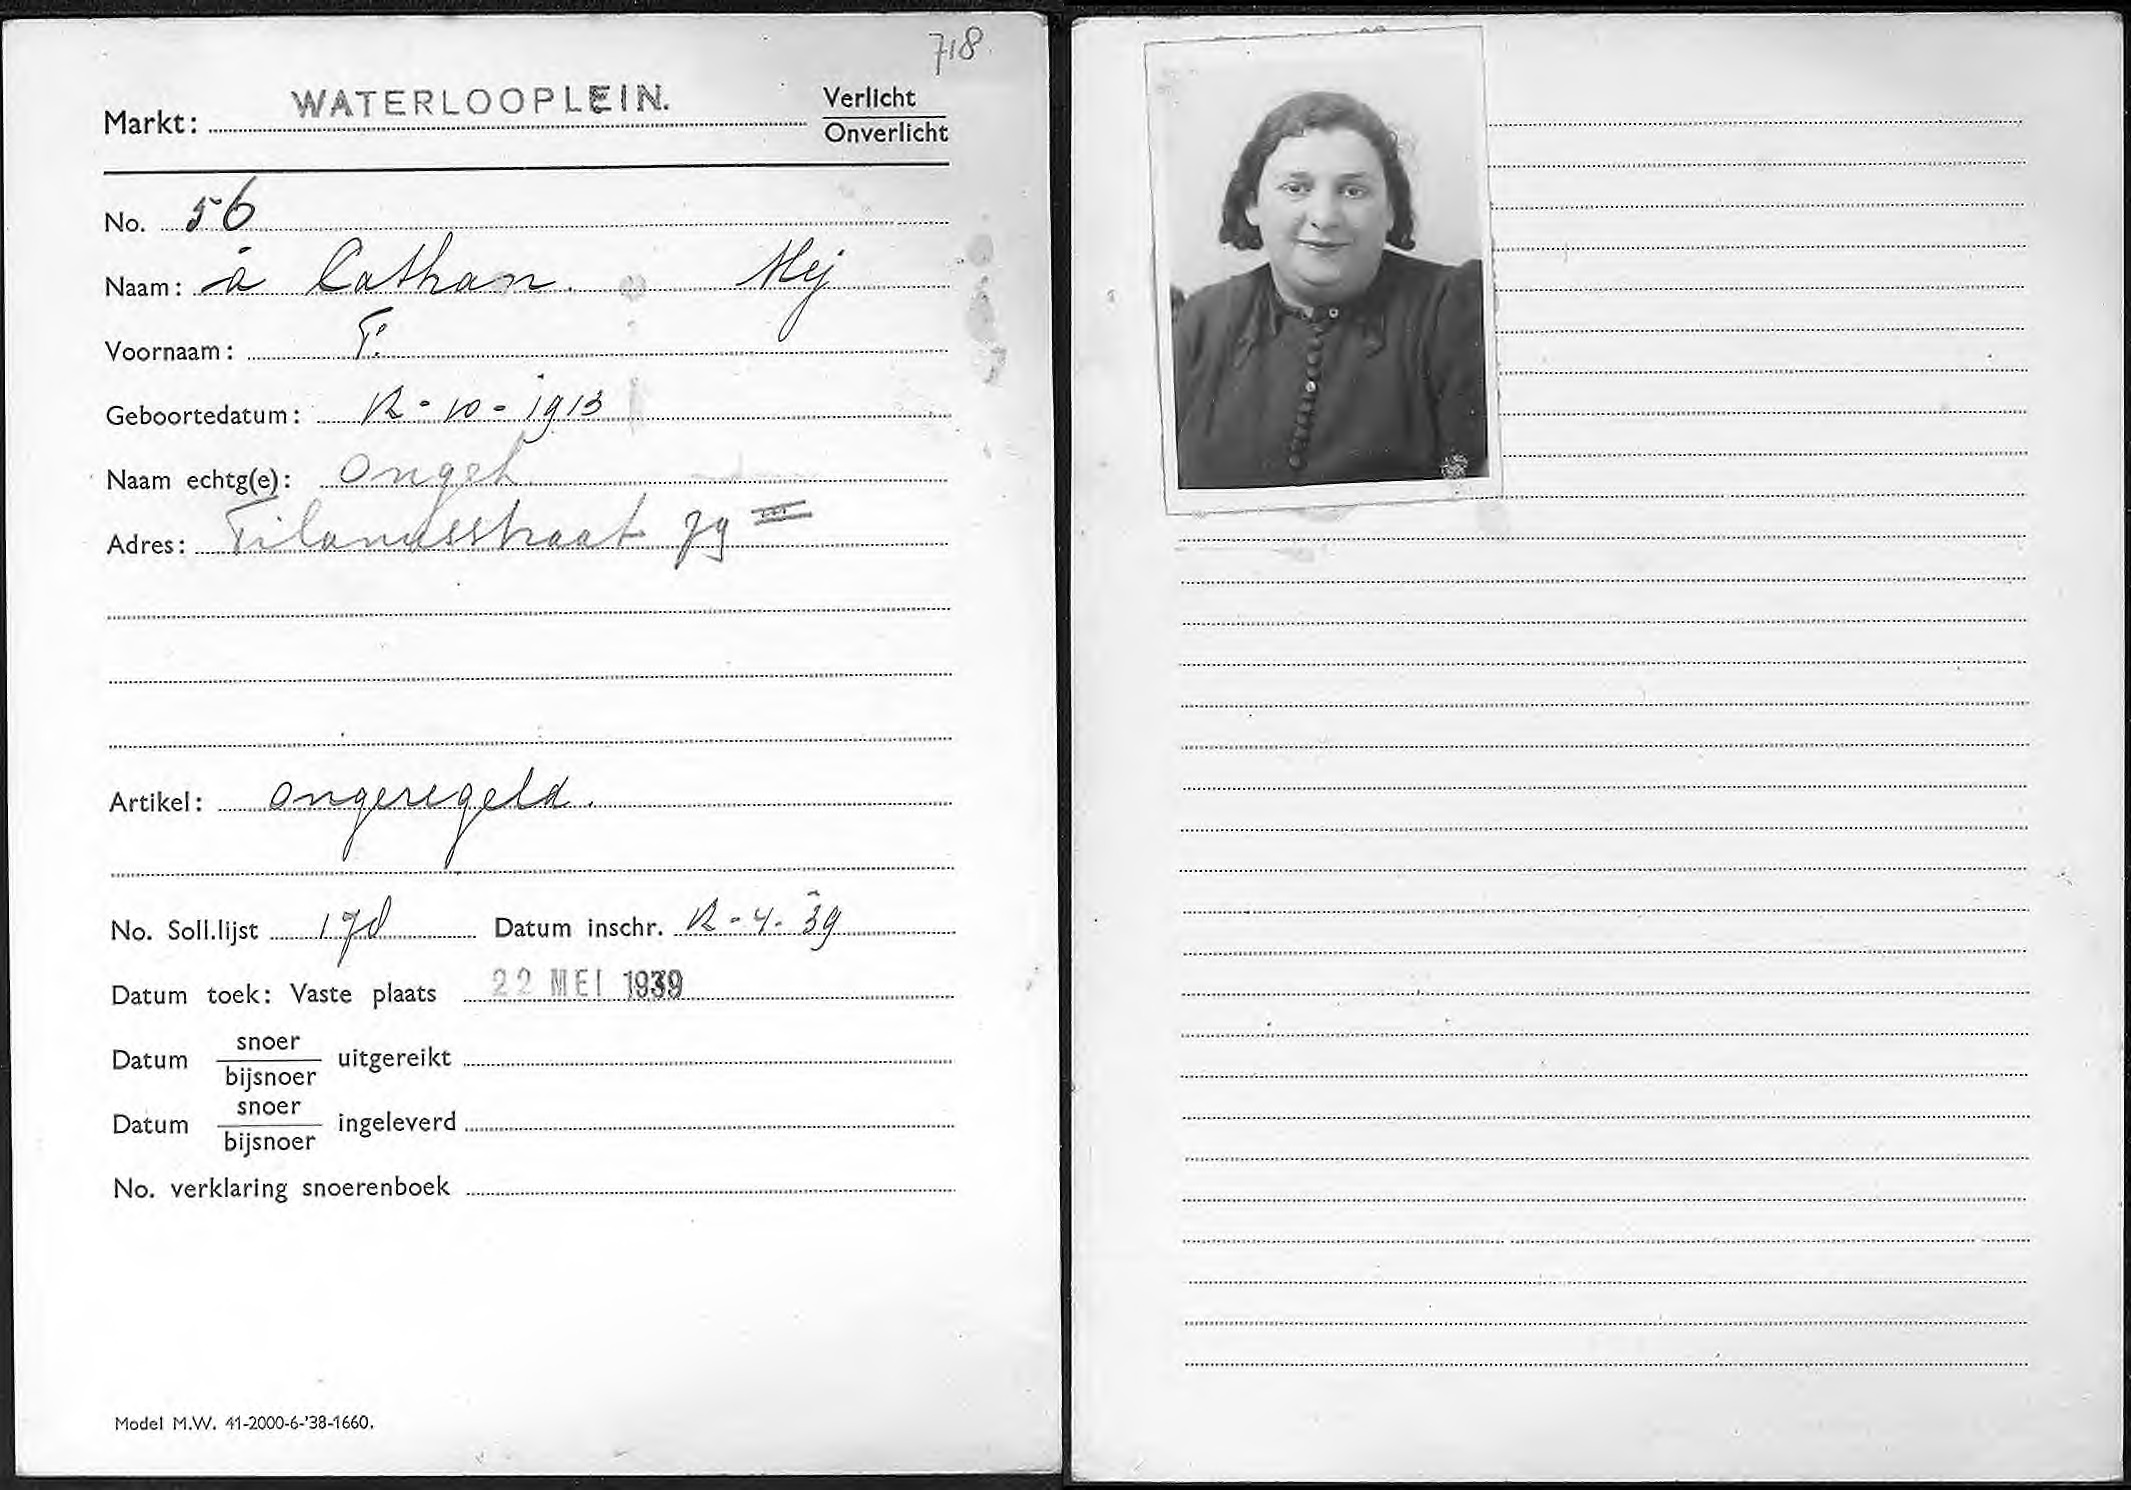 718
Markt: WATERLOOPLEIN. Verlicht
Onverlicht
No. 56
Naam: à Cathan. Mej
Voornaam: F.
Geboortedatum: 12-10-1913
Naam echtg(e): Ongeh
Adres: 79 III
Artikel: ongeregeld.
No. Soll.lijst 178 Datum inschr. 12-4-39
Datum toek: Vaste plaats 22 MEI 1939
Datum snoer
bijsnoer uitgereikt
Datum snoer
bijsnoer ingeleverd
No. verklaring snoerenboek
Model M.W. 41-2000-6-'38-1660.